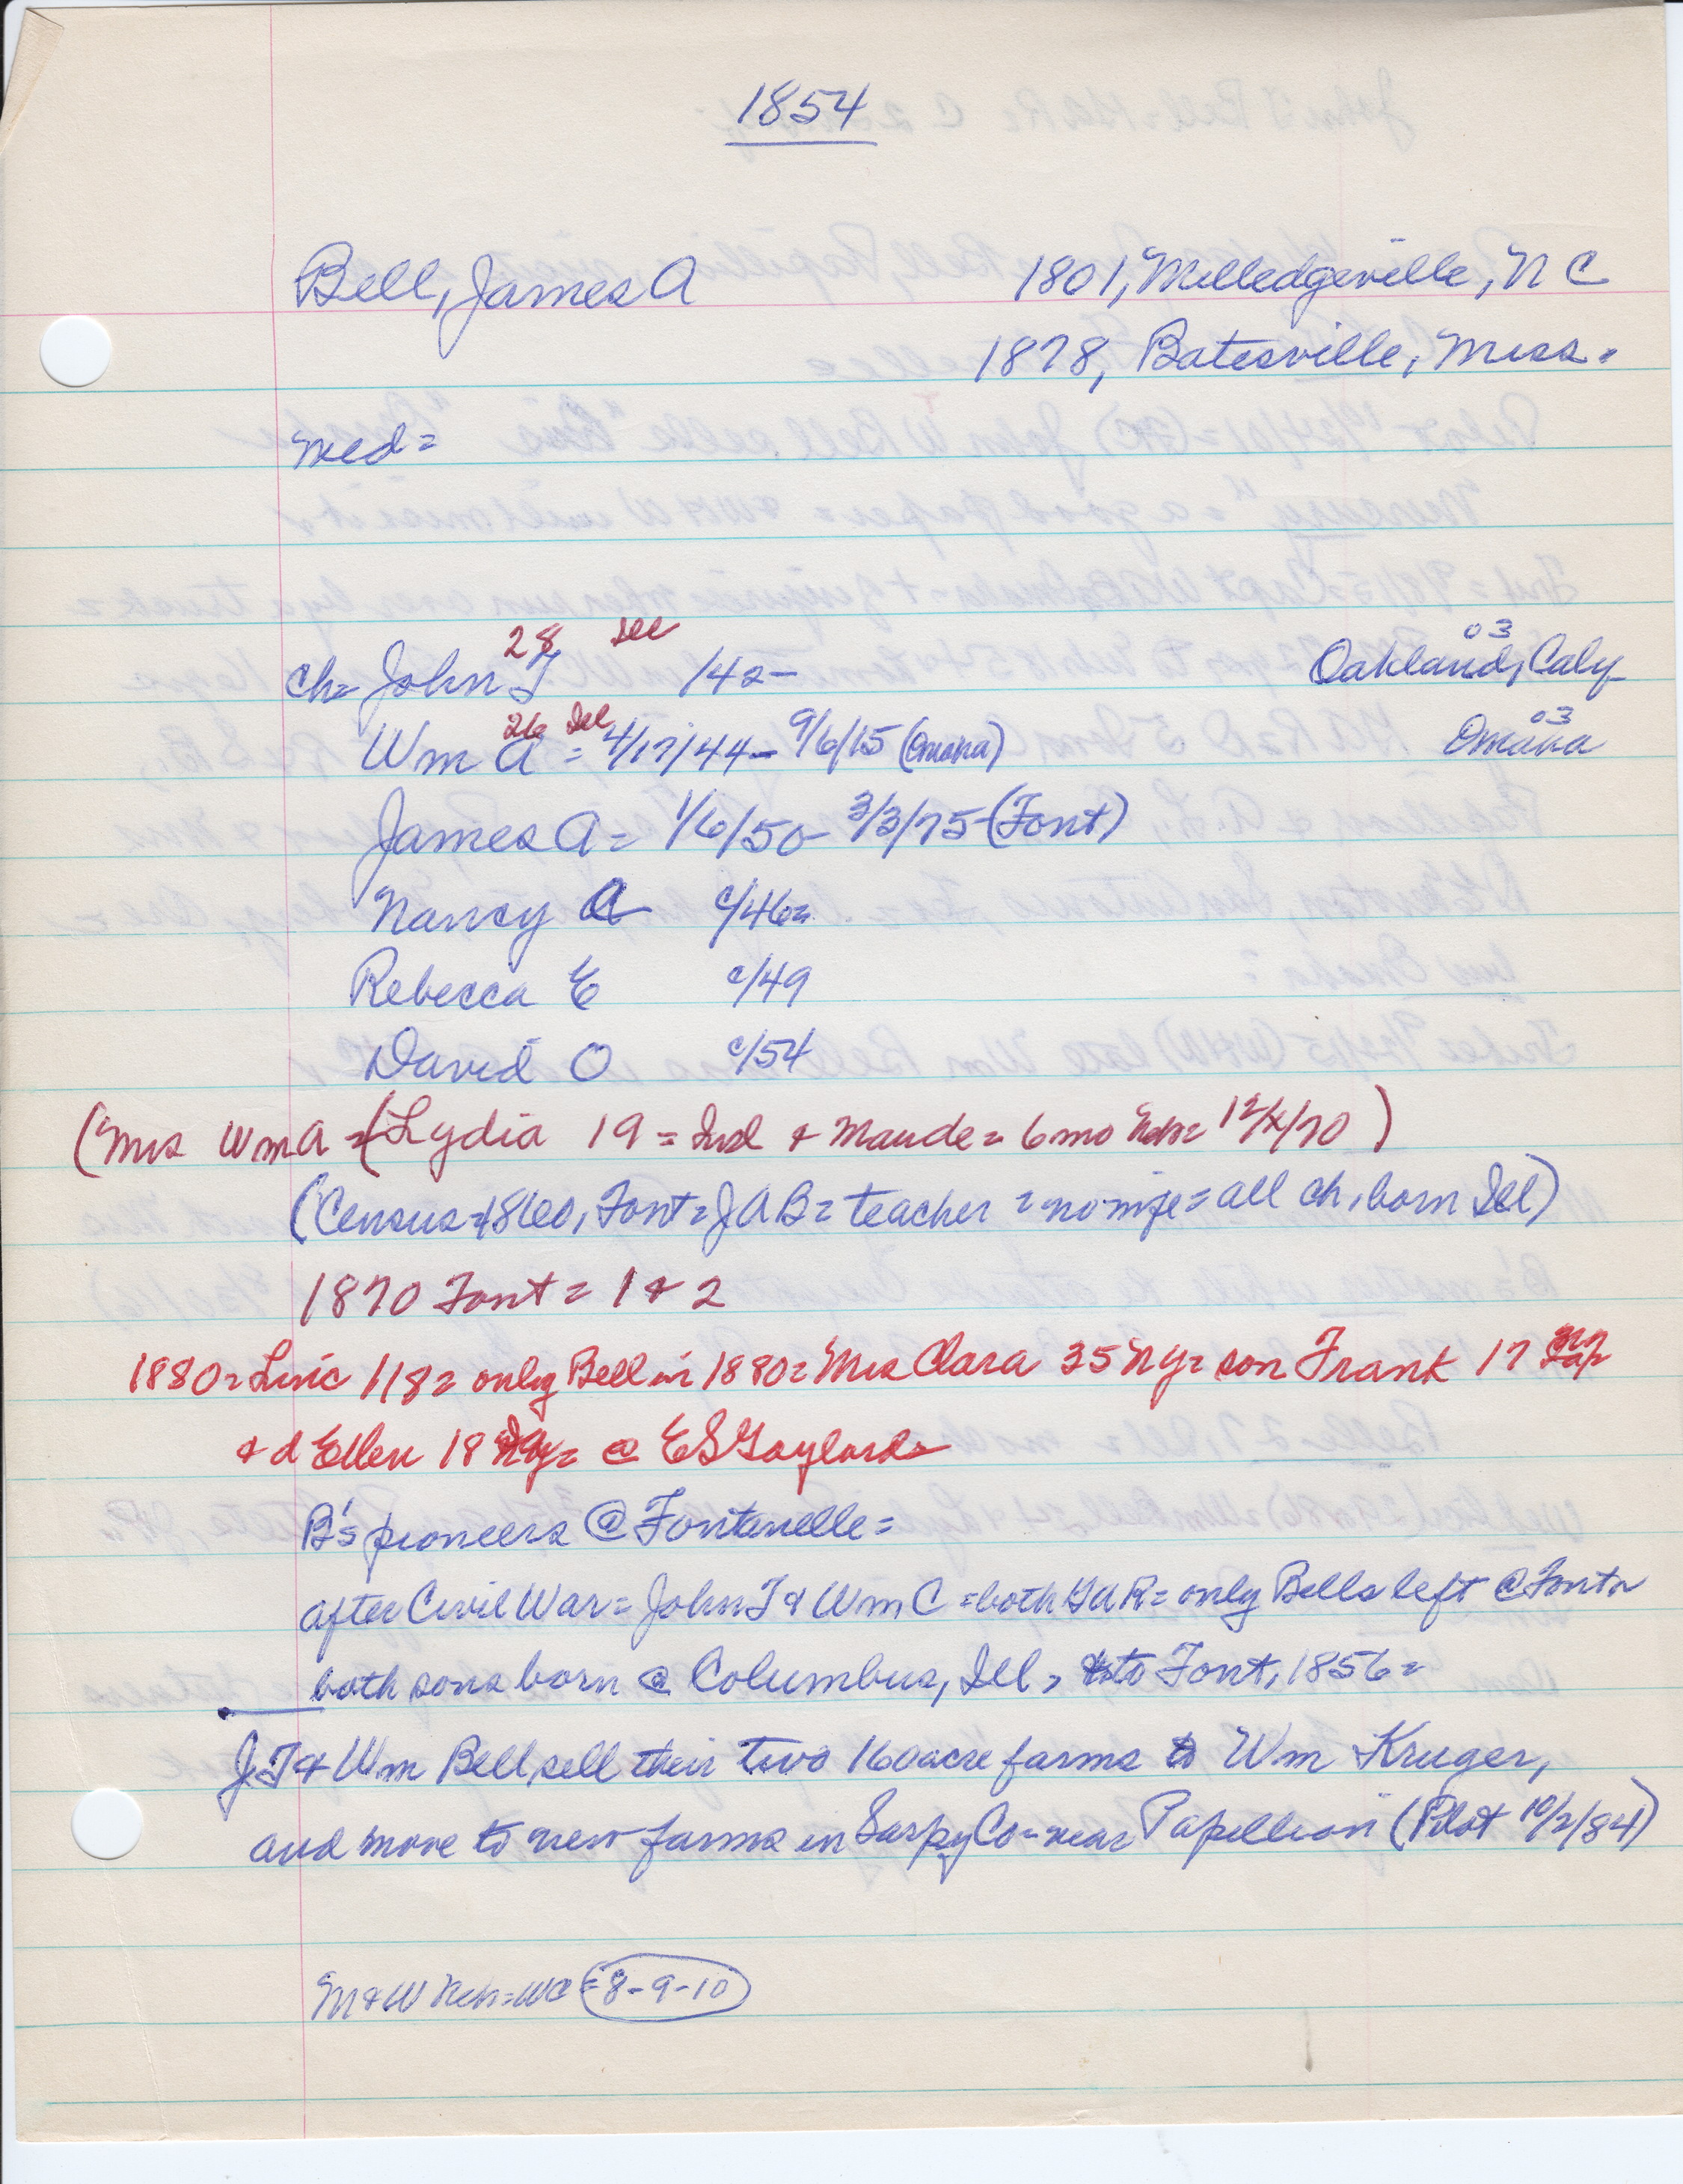 1854
Bell, James A 1801, Milledgeville, N C
1878, Batesville, Miss.
med =
28 Ill
ch= John T /42- Oakland, Calif 03
26 Ill
Wm A = 4/17/44- 9/6/15 (Omaha) Omaha 03
James A = 1/6/50- 3/3/75 (Font)
Nancy A c/46=
Rebecca E c/49
David O c/54
(Mrs Wm A = (Lydia 19 = Ind + Maude = 6 mo Neb = 12/x/70)
(Census = 1860, Font = J A B = teacher = no wife = all ch, born Ill)
1870 Font = 1 & 2
1880 = Linc 118 = only Bell in 1880 = Mrs Clara 35 NY = son Frank 17
+ d Ellen 18 = @ E S Gaylords
B's pioneers @ Fontenelle =
after Civil War = John T & Wm C = both GAR = only Bells left @ Font
both sons born @ Columbus, Ill, to Font, 1856 =
J.T & Wm Bell sell their two 160 acre farms to Wm Kruger,
and move to new farms in Sarpy Co = near Papillion (Pilot 10/2/84)
M & W Neb = WC = 8-9-10